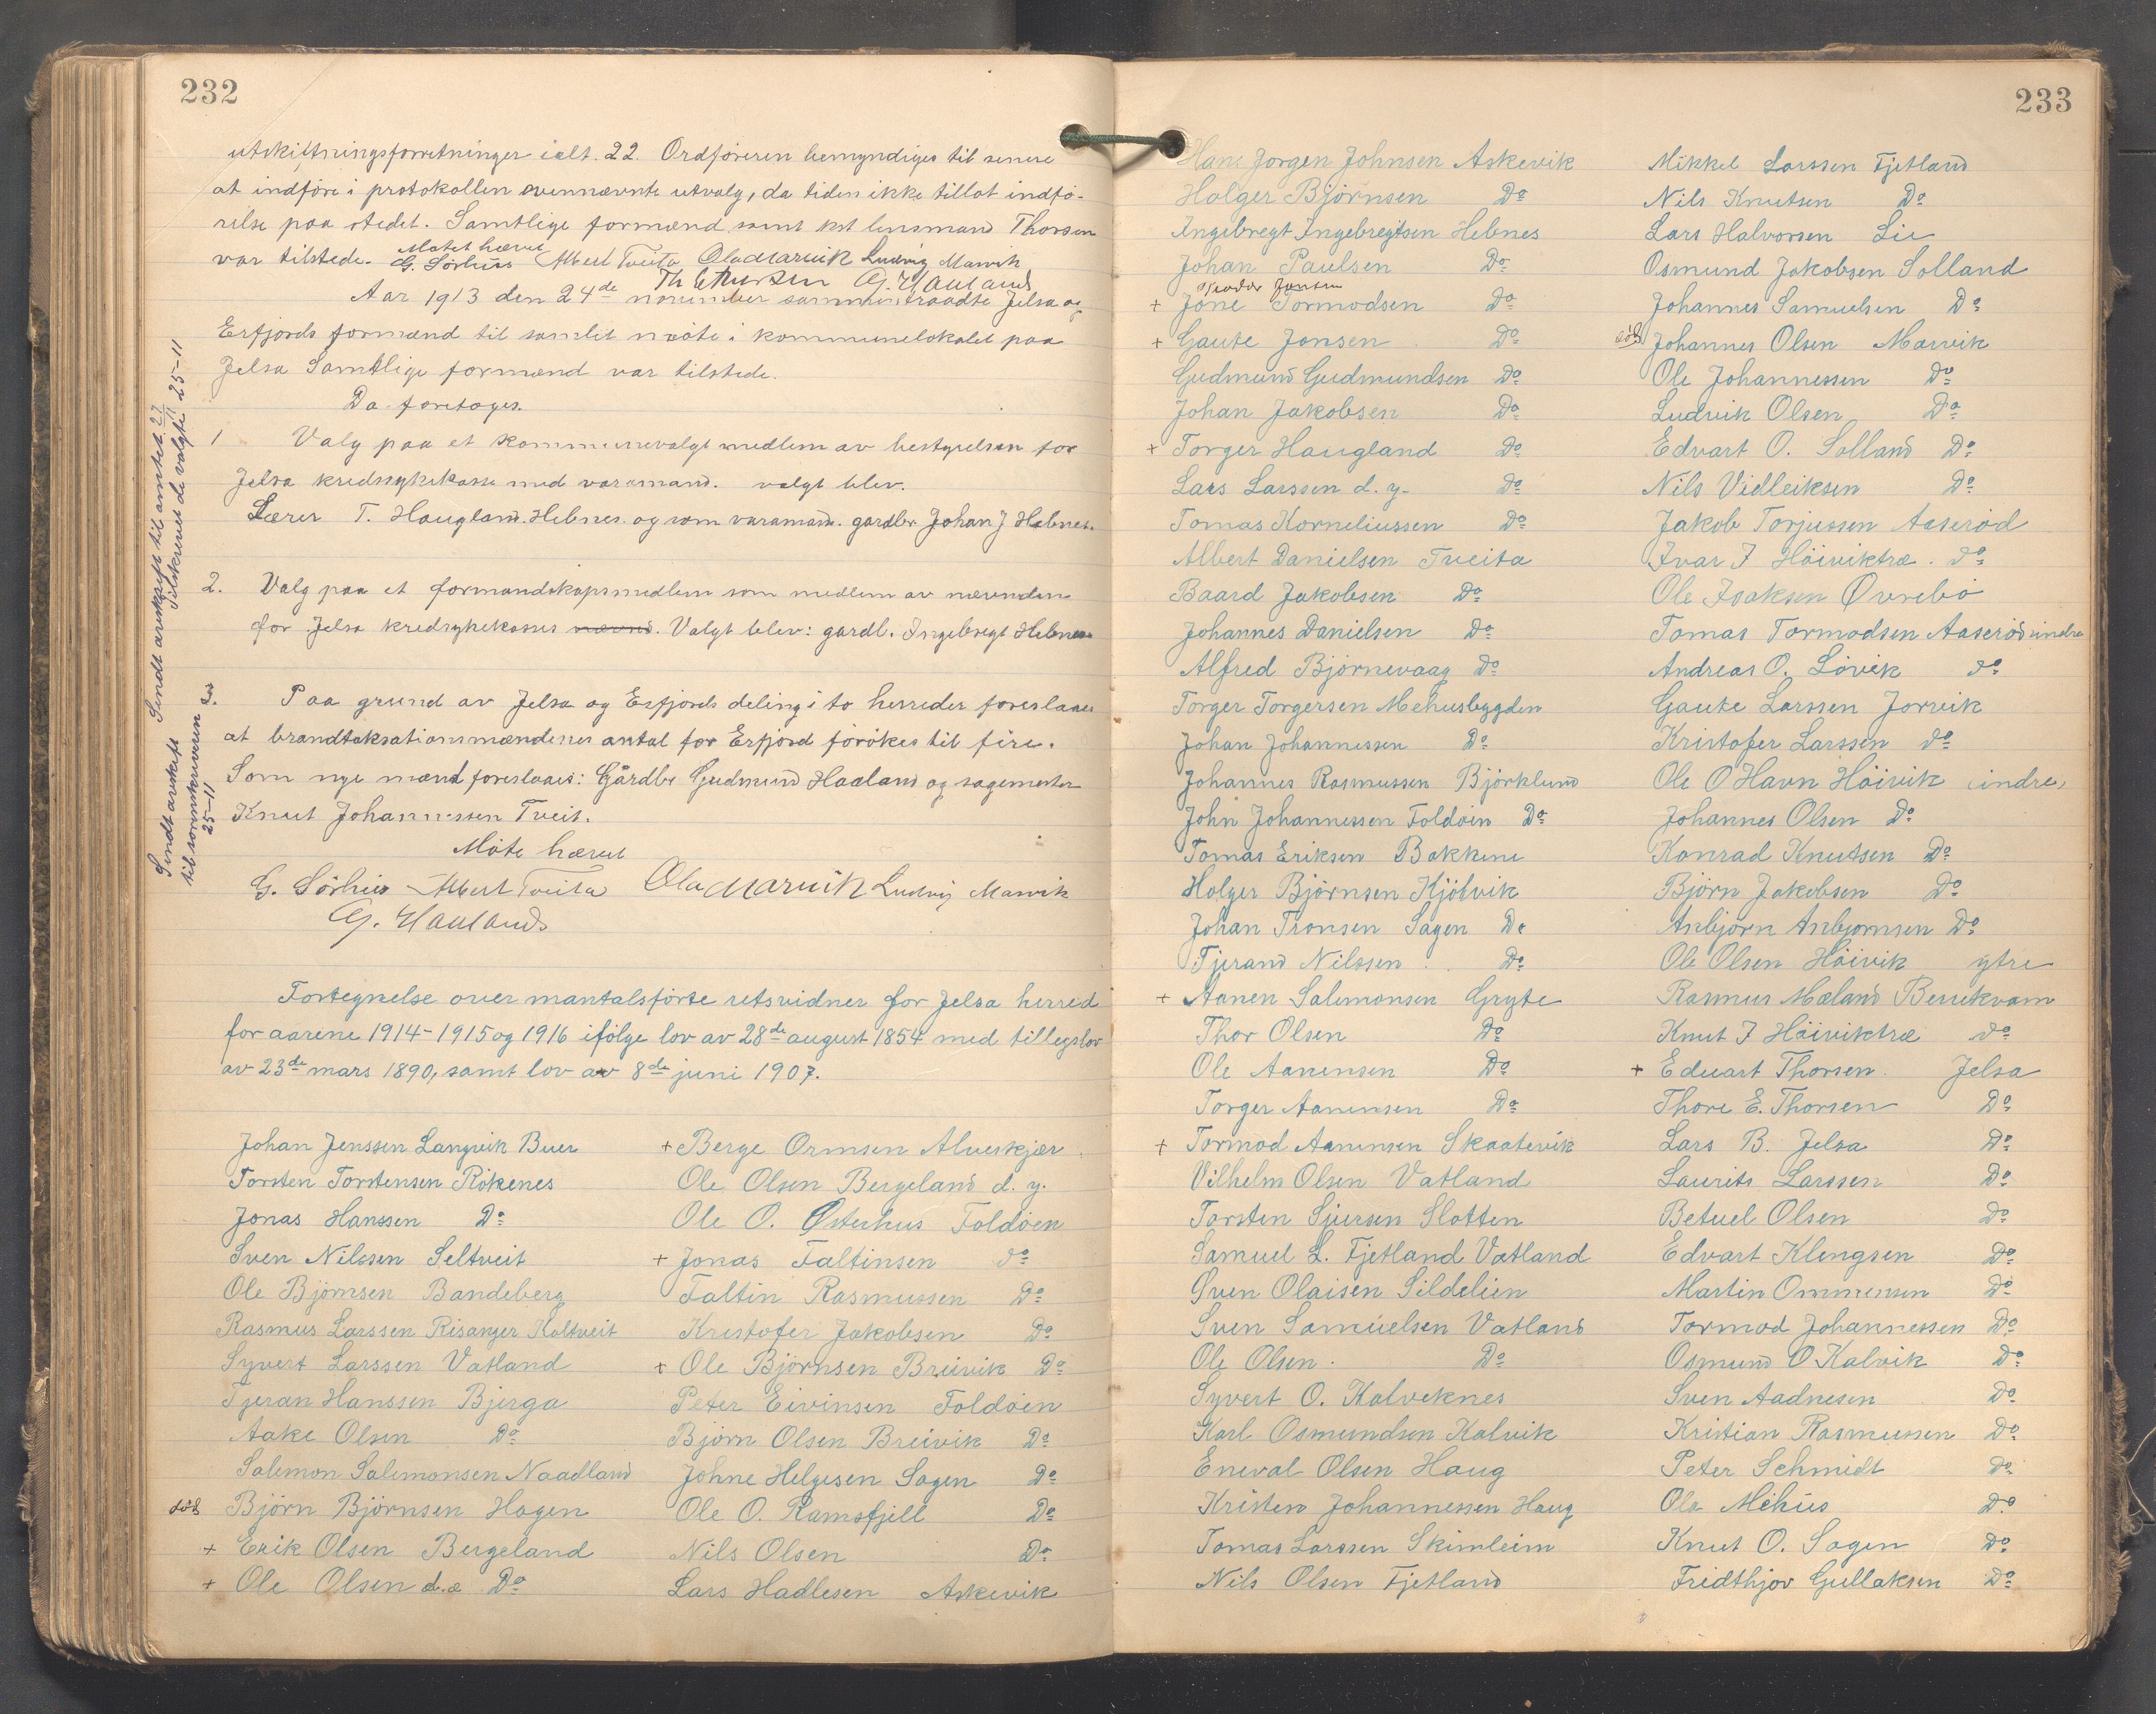 232
utskiftningsforretninger ialt. 22. Ordføreren bemyndiges til senere
at indføre i protokollen ovennævnte utvalg, da tiden ikke tillot indfø-
relse paa stedet. Samtlige formænd samt kst lensmand Thorsen
var tilstede. Møtet hævet
G. Sørhus Albert Tveita Ola Marvik Ludvig Marvik
G. Haaland
Aar 1913 den 24de november sammentraadte Jelsa og
Erfjords formænd til samlet møte i kommunelokalet paa
Jelsa Samtlige formænd var tilstede.
Da foretoges.
1 Valg paa et kommunevalgt medlem av bestyrelsen for
Jelsa kredssykekasse med varamand. valgt blev.
Lærer T. Haugland. Hebnes. og som varamand. gardbr Johan J Hebnes.
2. Valg paa et formandskapsmedlem som medlem av nævnden
for Jelsa kredsykekasses nævnd. Valgt blev: gardb. Ingebregt Hebnes
3. Paa grund av Jelsa og Erfjords deling i to herreder foreslaaes
at brandtaksationsmændenes antal for Erfjord forøkes til fire.
Som nye mænd foreslaaes: Gårdbr Gudmund Haaland og sagemester
Knut Johannessen Tveit.
Møte hævet
G. Sørhus Albert Tveita Ola Marvik Ludvig Marvik
G. Haaland
Sendt avskrift til amtet 27/11
Tilskrevet de valgte 25-11
Sendt avskrift
til sorenskriveren
25-11
Fortegnelse over mantalsførte retsvidner for Jelsa herred
for aarene 1914-1915 og 1916 ifølge lov av 28de august 1854 med tillegslov
av 23de mars 1890, samt lov av 8de juni 1907.
Johan Jenssen Langvik Buer
Torsten Torstensen Røkenes
Jonas Hanssen Do
Sven Nilssen Seltveit
Ole Bjørnsen Bandeberg
Rasmus Larssen Risanger Holtveit
Syvert Larssen Vatland
Tjeran Hanssen Bjerga
Aake Olsen Do
Salemon Salemonsen Naadland
død Bjørn Bjørnsen Hagen
+ Erik Olsen Bergeland
+ Ole Olsen d.æ Do
+ Berge Ormsen Alveskjær
Ole Olsen Bergeland d. y.
Ole O. Østerhus Foldøen
+ Jonas Faltinsen do
Faltin Rasmussen Do
Kristofer Jakobsen Do
+ Ole Bjørnsen Breivik Do
Peter Eivinsen Foldøen
Bjørn Olsen Breivik Do
Johne Helgesen Sagen Do
Ole O. Ramsfjell Do
Nils Olsen Do
Lars Hadlesen Askevik
233
Hans Jorgen Johnsen Askevik
Holger Bjørnsen Do
Ingebregt Ingebregtsen Hebnes
Johan Paulsen Do
Teodor Jonsen
+ Jone Tormodsen Do
+ Gaute Jonsen Do
Gudmund Gudmundsen Do
Johan Jakobsen Do
+ Torger Haugland Do
Lars Larssen d. y. Do
Tomas Korneliussen Do
Albert Danielsen Tveita
Baard Jakobsen Do
Johannes Danielsen Do
Alfred Bjørnevaag Do
Torger Torgersen Mehusbygden
Johan Johannessen Do
Johannes Rasmussen Bjørklund
John Johannessen Foldøin Do
Tomas Eriksen Bakkene
Holger Bjørnsen Kjølvik
Johan Tronsen Sagen Do
Tjerand Nilssen Do
+ Aanen Salemonsen Gryte
Thor Olsen Do
Ole Aanensen Do
Torger Aanensen Do
+ Tormod Aanensen Skaatevik
Vilhelm Olsen Vatland
Torsten Sjursen Slotten
Samuel L. Fjetland Vatland
Sven Olaisen Sildelien
Sven Samuelsen Vatland
Ole Olsen Do
Syvert O. Kalveknes
Karl Osmundsen Kalvik
Eneval Olsen Haug
Kristen Johannessen Haug
Tomas Larssen Skimleim
Nils Olsen Fjetland
Mikkel Larssen Fjetland
Nils Knutsen Do
Lars Halvorsen Lie
Osmund Jakobsen Solland
Johannes Samuelsen Do
død Johannes Olsen Marvik
Ole Johannessen Do
Ludvik Olsen Do
Edvart O. Solland Do
Nils Vidleiksen Do
Jakob Torjussen Aaserød
Ivar J Høiviktræ. do
Ole Isaksen Øvrebø
Tomas Tormodsen Aaserød indre
Andreas O. Løvik do
Gaute Larssen Jorvik
Kristofer Larssen do
Ole O Havn Høivik indre,
Johannes Olsen Do
Konrad Knutsen Do
Bjørn Jakobsen Do
Anbjørn Anbjørnsen Do
Ole Olsen Høivik ytre
Rasmus Mæland Berrekvam
Knut J Høiviktræ do
+ Edvart Thorsen. Jelsa
Thore E. Thorsen Do
Lars B. Jelsa Do
Laurits Larssen Do
Betuel Olsen Do
Edvart Klengsen Do
Martin Ommensen Do
Tormod Johannessen Do
Osmund O Kalvik Do
Sven Aadnesen Do
Kristian Rasmussen Do
Peter Schmidt Do
Ole Mehus Do
Knut O. Sagen Do
Fridthjov Gullaksen Do